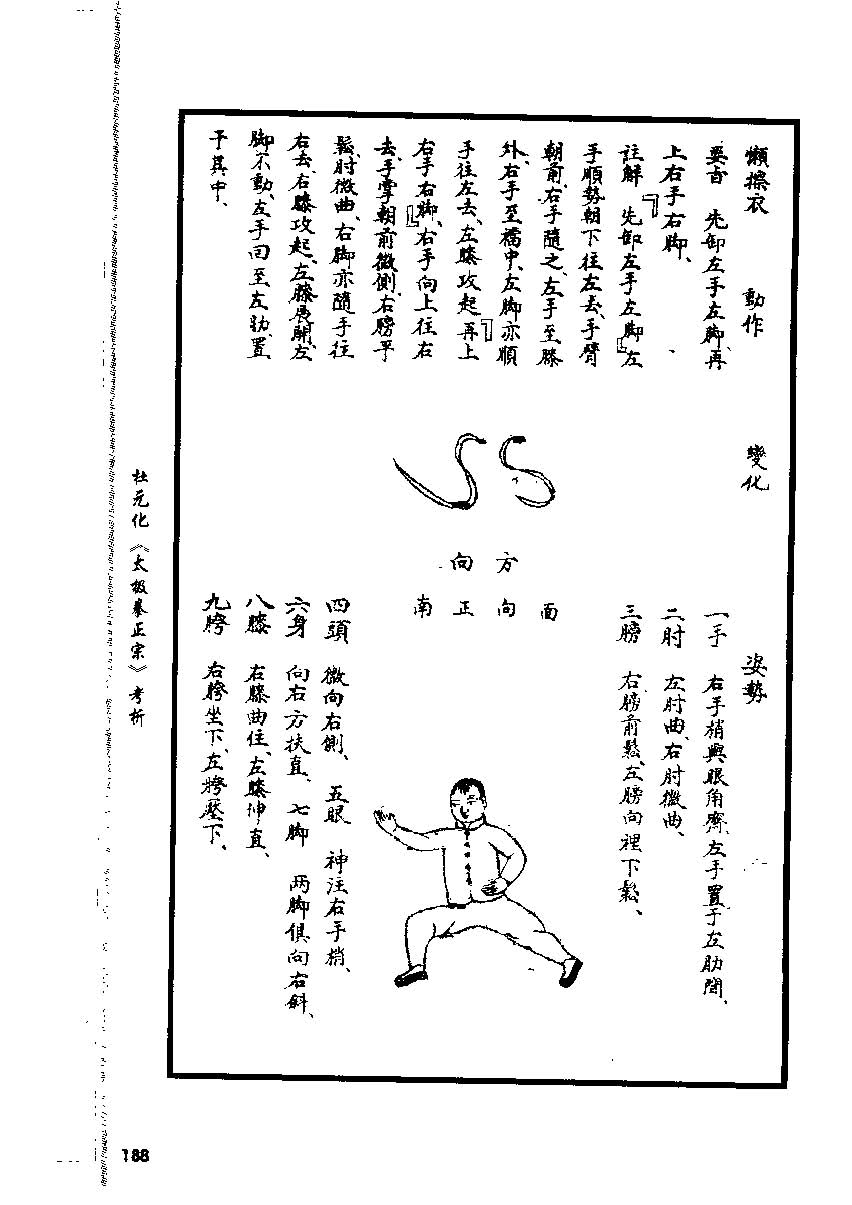 懶擦衣 動作 變化 姿勢
要言 先卸左手左脚、再
上右手右脚、
註解 先卸左手左脚『左
手順勢朝下往左去、手臂
朝前、右手隨之、左手至膝
外、右手至襠中、左脚亦順
手往左去、左膝攻起』再上
右手右脚『右手向上往右
去、手掌朝前微側、右膀平
鬆、肘微曲、右脚亦隨手往
右去、右膝攻起、左膝展開、左
脚不動、左手回至左肋、置
于其中、
方向
面向正南
一手 右手梢與眼角齊、左手置于左肋間、
二肘 左肘曲、右肘微曲、
三膀 右膀前鬆、左膀向裡下鬆、
四頭 微向右側、 五眼 神注右手梢、
六身 向右方扶直、 七脚 两脚俱向右斜、
八膝 右膝曲住、左膝伸直、
九胯 右胯坐下、左胯壓下、
杜元化《太极拳正宗》考析
188